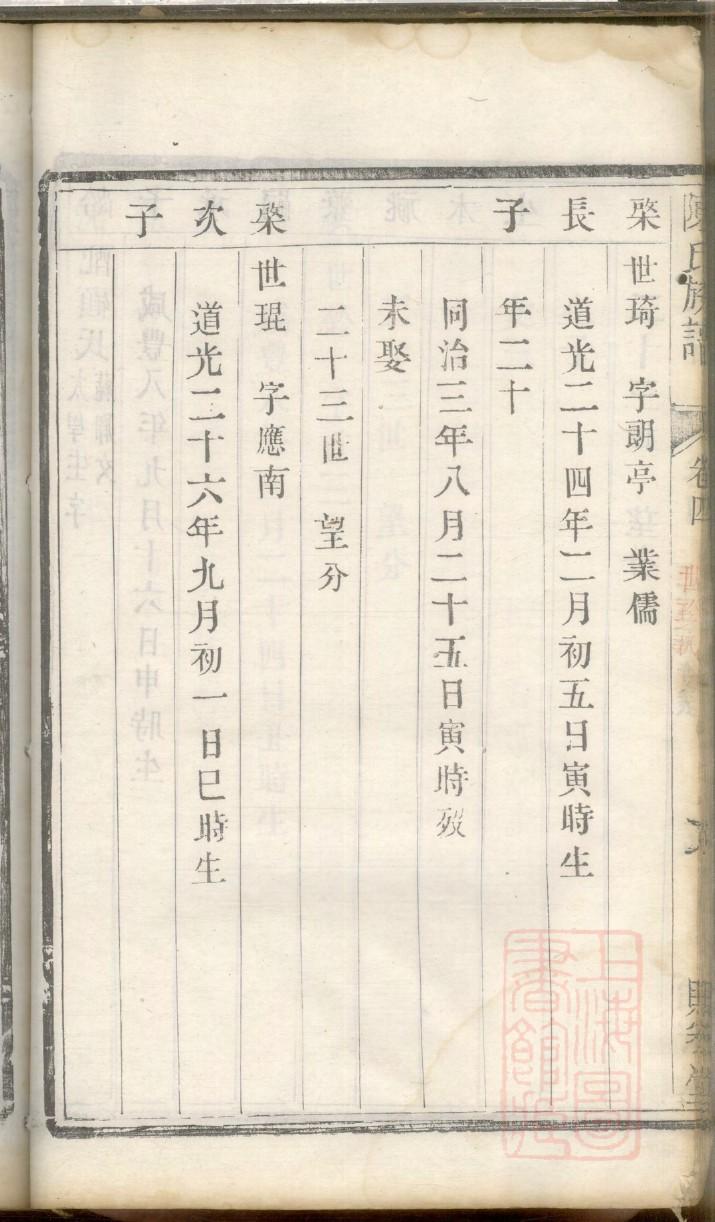 陳氏族譜
卷四
棨長子
世琦 字朗亭 業儒
道光二十四年二月初五日寅時生
年二十
同治三年八月二十五日寅時歿
未娶
二十三世 望分
棨次子
世琨 字應南
道光二十六年九月初一日巳時生
上海圖書館藏